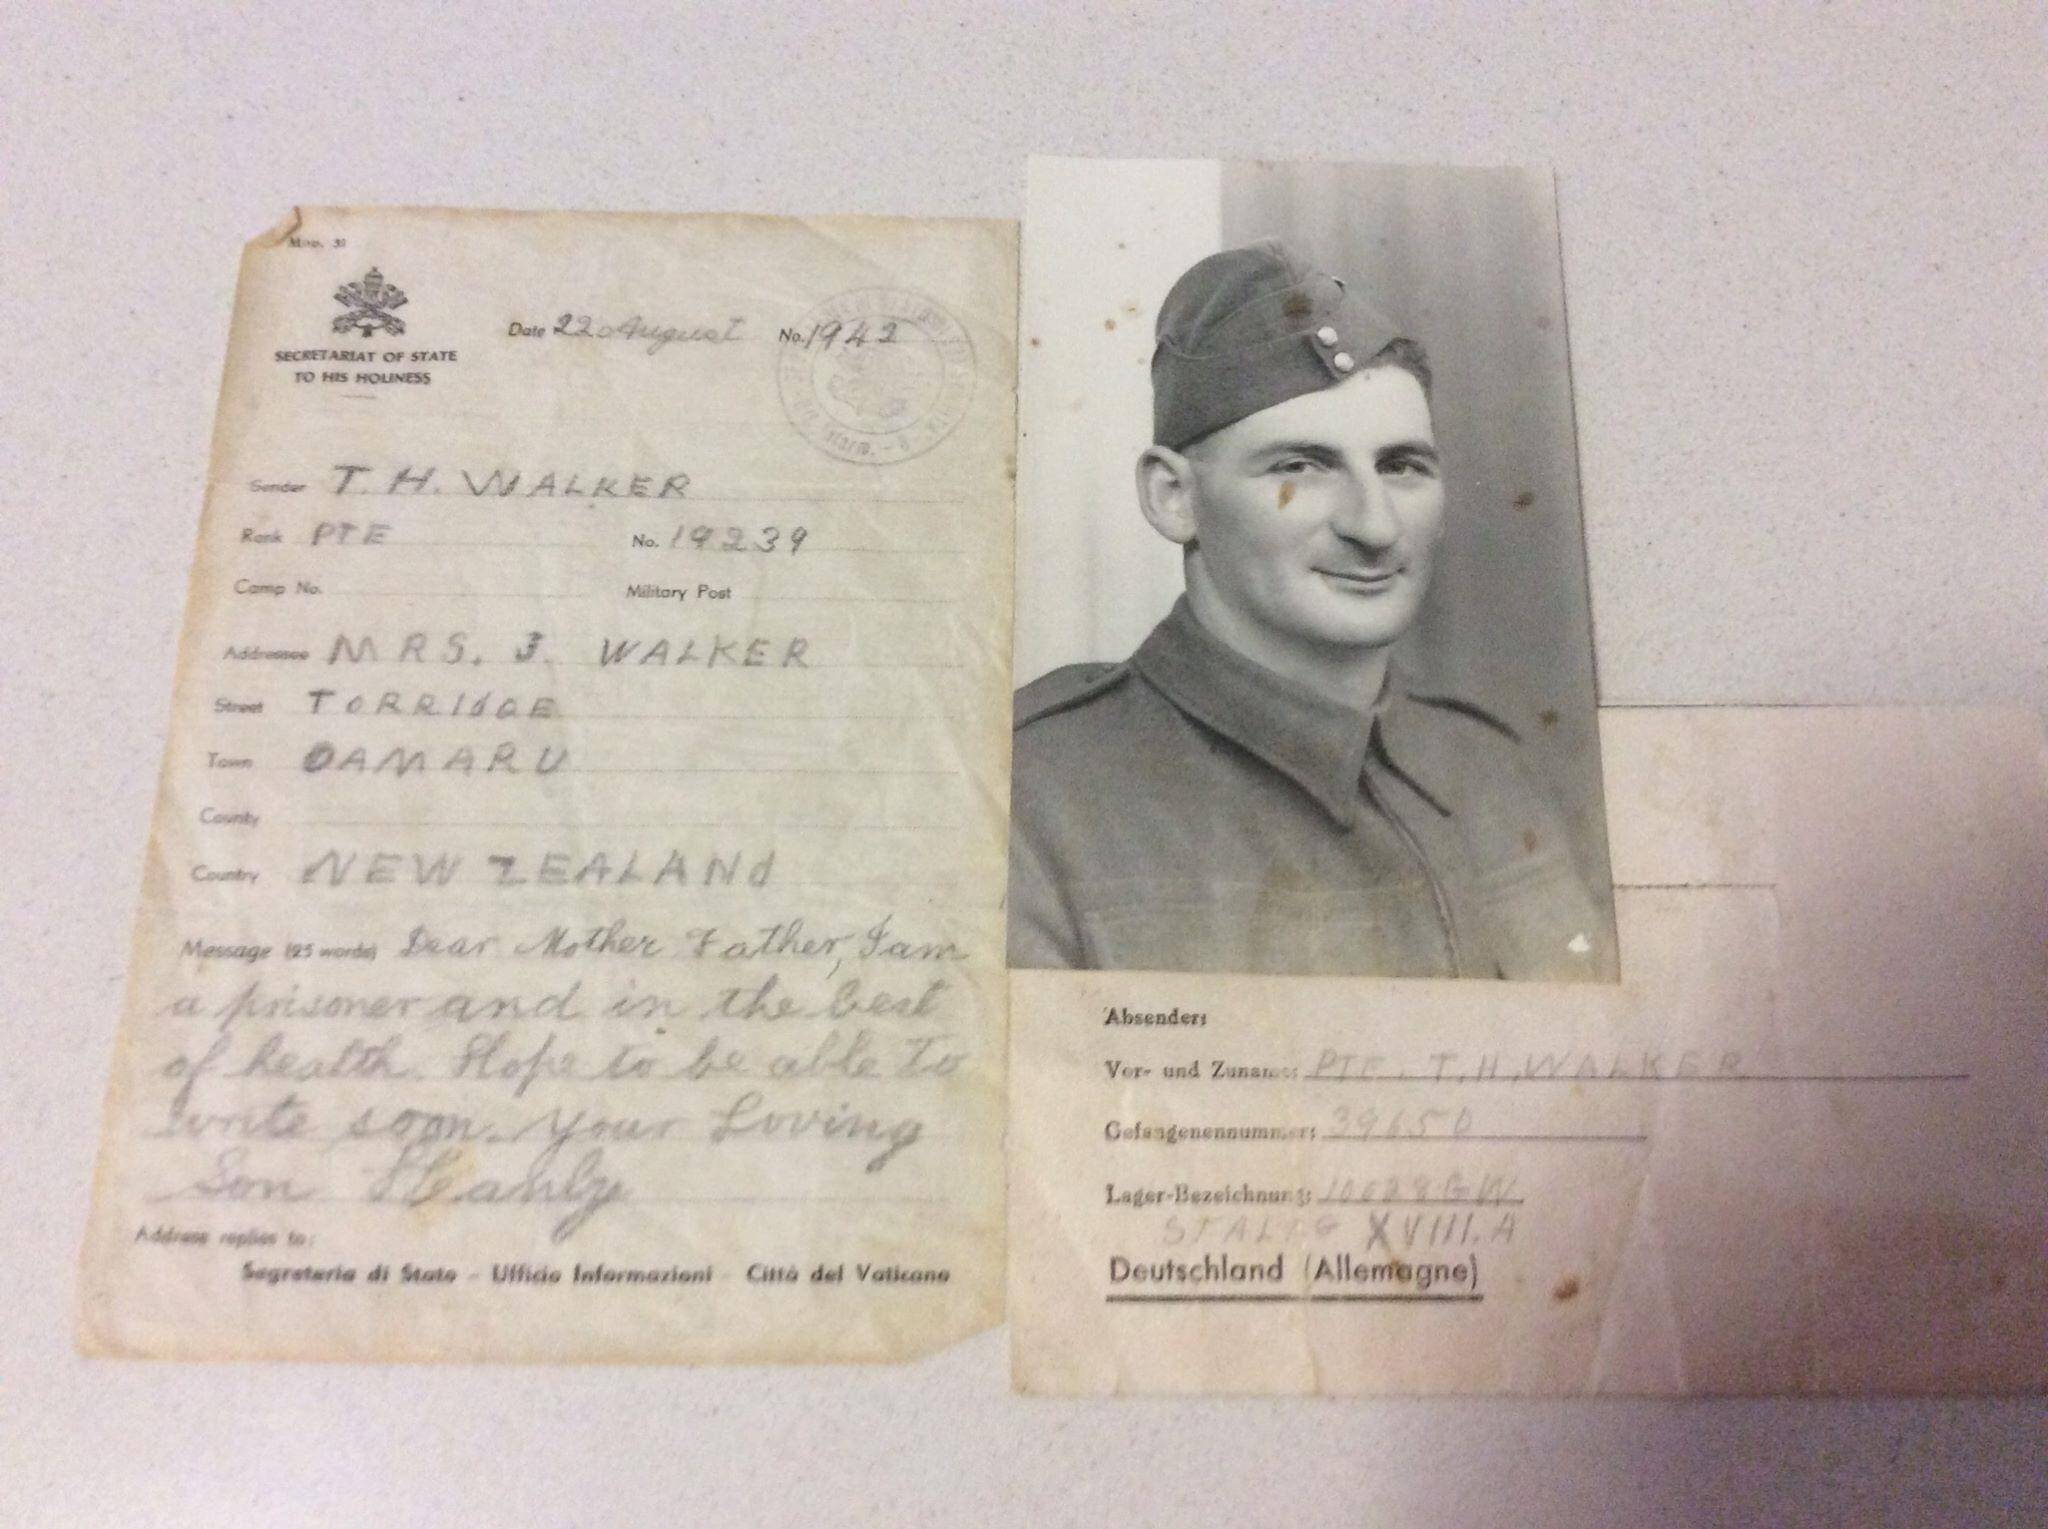 Mod. 31
SECRETARIAT OF STATE
TO HIS HOLINESS
Date 22 August No. 1942
Sender T. H. WALKER
Rank PTE No. 19239
Camp No. Military Post
Addressee MRS. J. WALKER
Street TORRIDGE
Town OAMARU
County
Country NEW ZEALANd
Message (25 words) Dear Mother Father, I am
a prisoner and in the best
of health. Hope to be able to
write soon. Your Loving
Son
Address replies to:
Segreteria di Stato - Ufficio Informazioni - Città del Vaticano
Absender:
Vor- und Zuname: PTE. T.H. WALKER
Gefangenennummer: 39650
Lager-Bezeichnung: GW
STALAG XVIII.A
Deutschland (Allemagne)